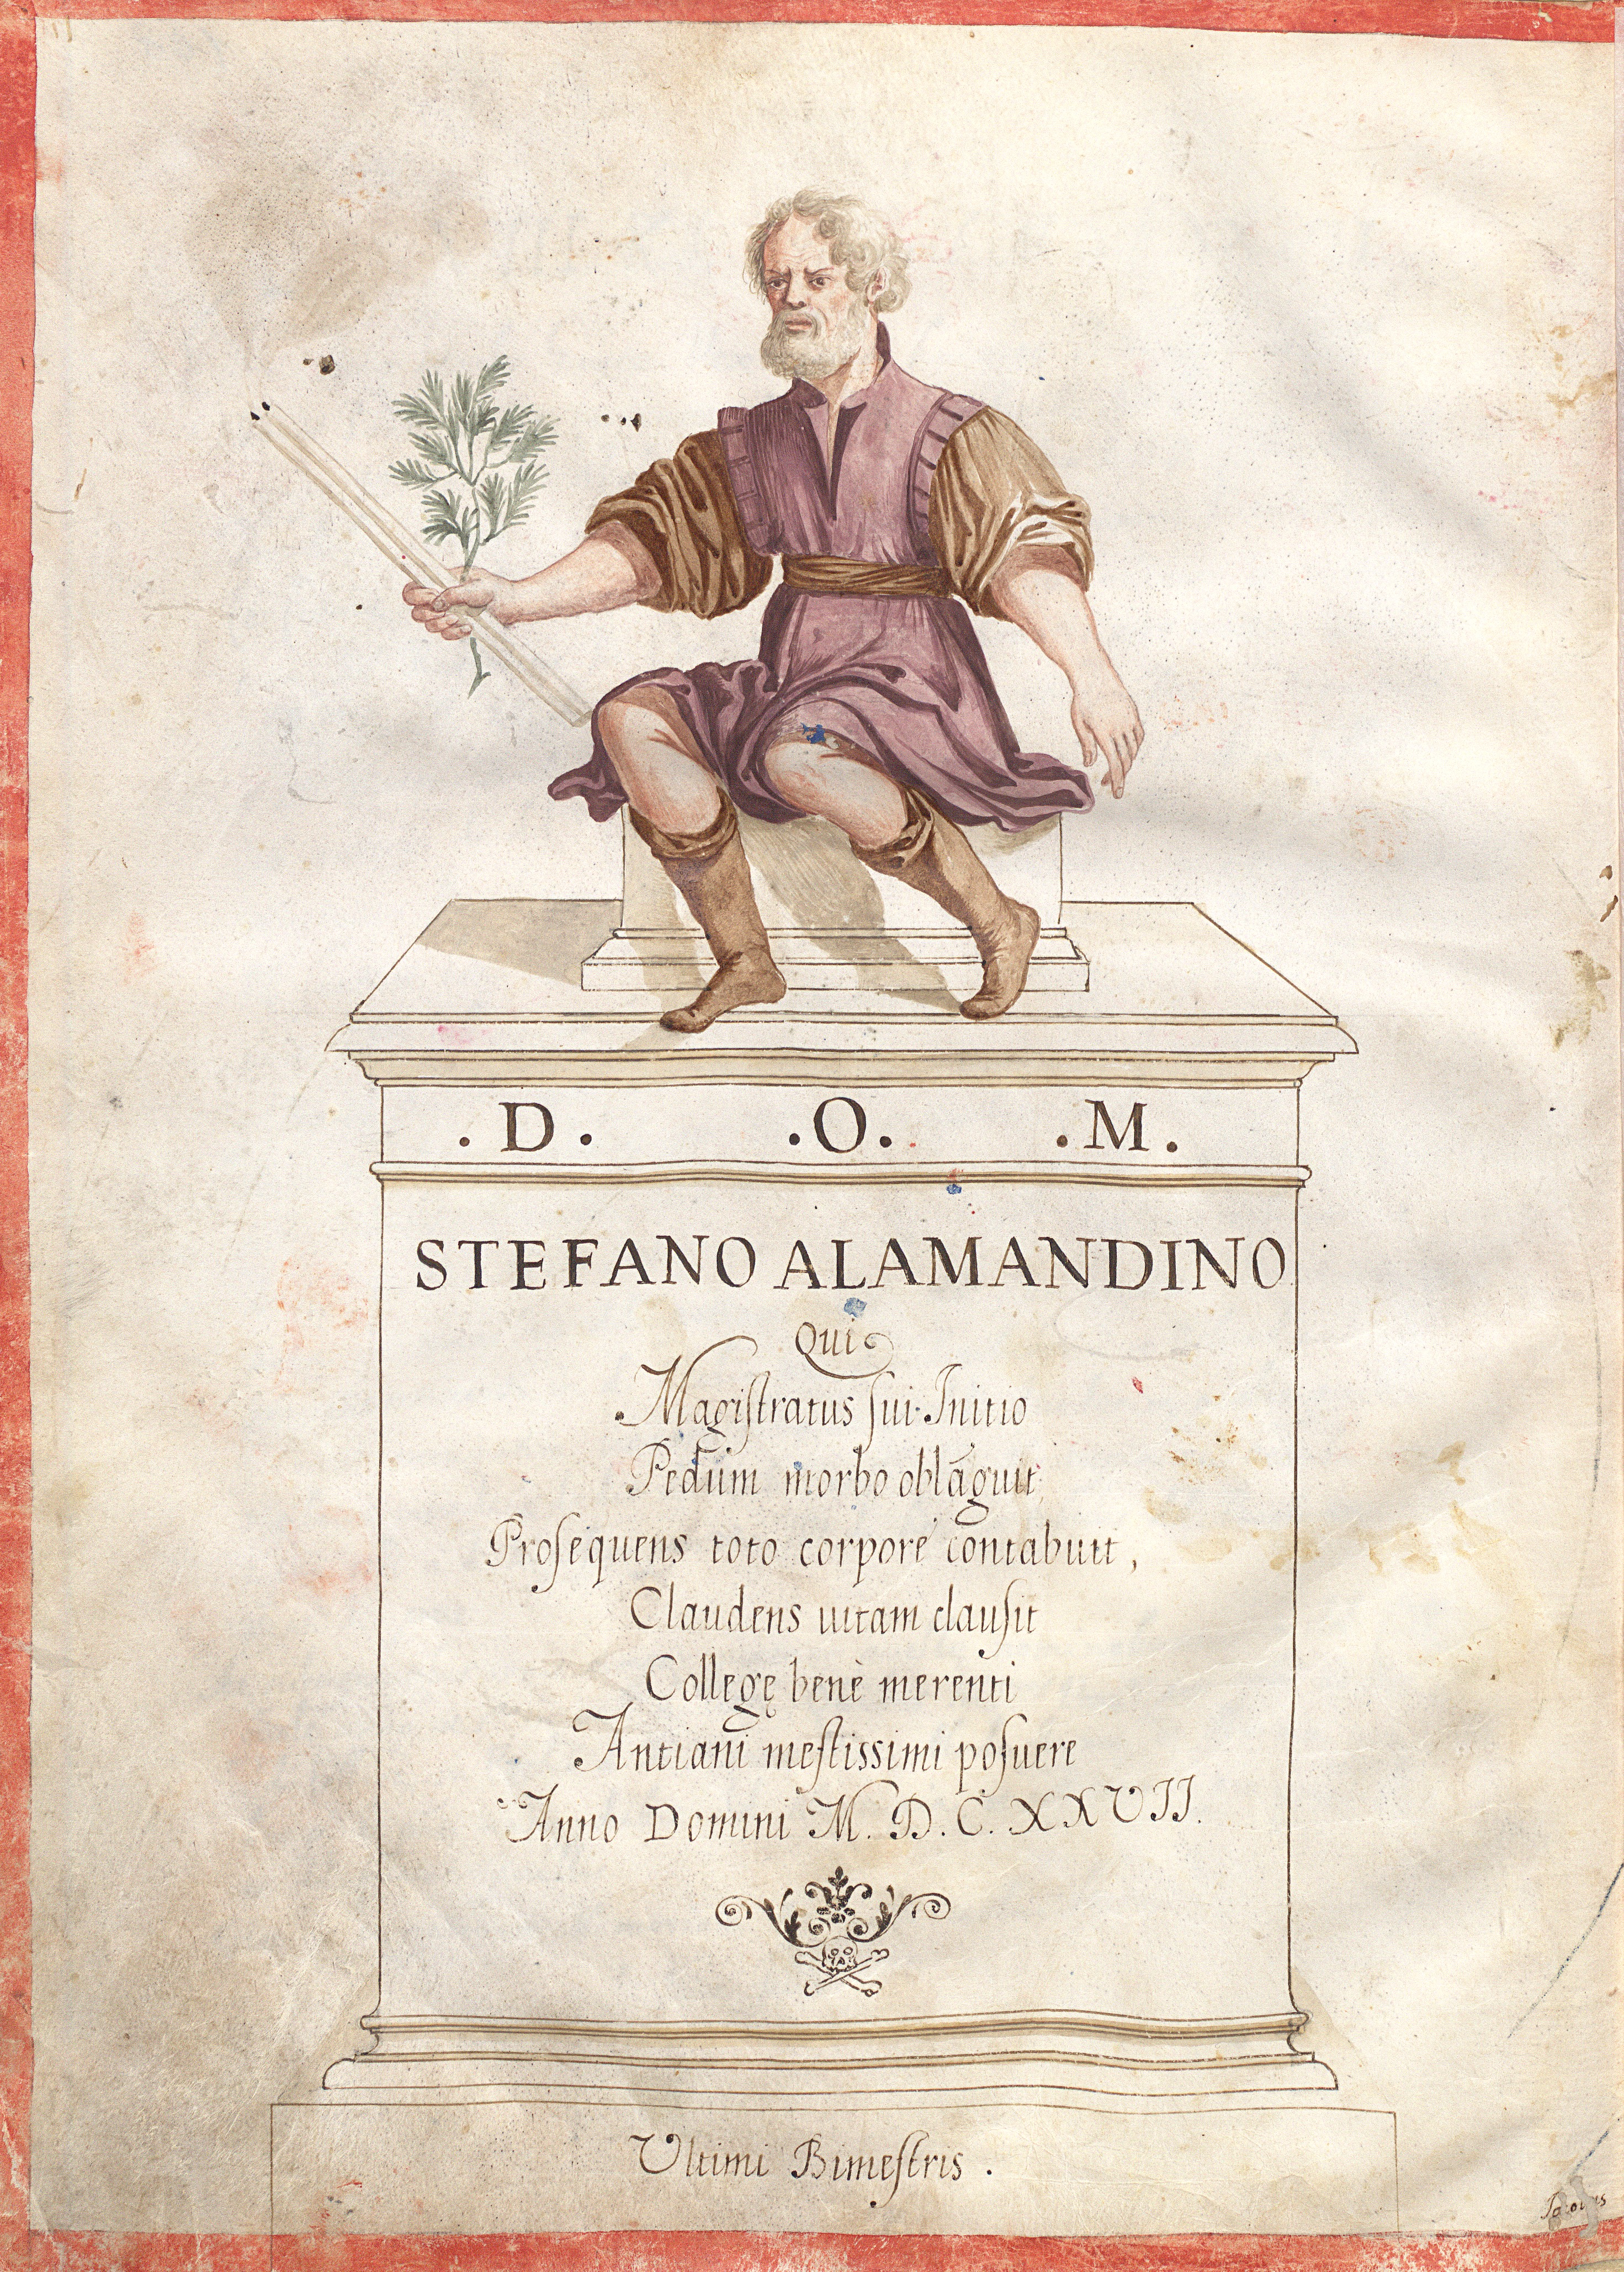 . D .   . O .   . M .
STEFANO ALAMANDINO
Qui
Magiſtratus ſui Initio
Pedum morbo oblāguit
Proſequens toto corpore contabuit,
Claudens uitam clauſit
Collegę benè merenti
Antiani meſtissimi poſuere
Anno Domini M. D. C. XXVII.
Ultimi Bimeſtris .